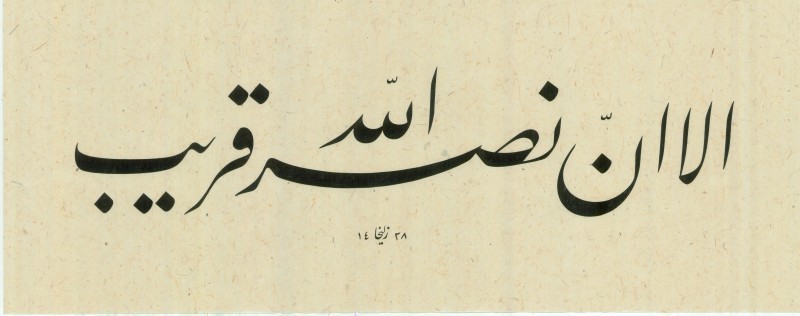 الا انّ نصر اللّه قریب
۲۸ زلیخا ١٤